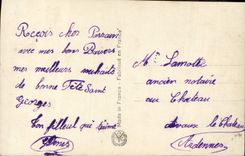 Reçois cher Parrain
avec mes bons Baisers
mes meilleurs souhaits
de bonne Fête Saint
Georges
Ton filleul qui t'aime
Made in France - Fabriqué en France
Mr Lamotte
ancien notaire
au Chateau
le Chateau
Ardennes